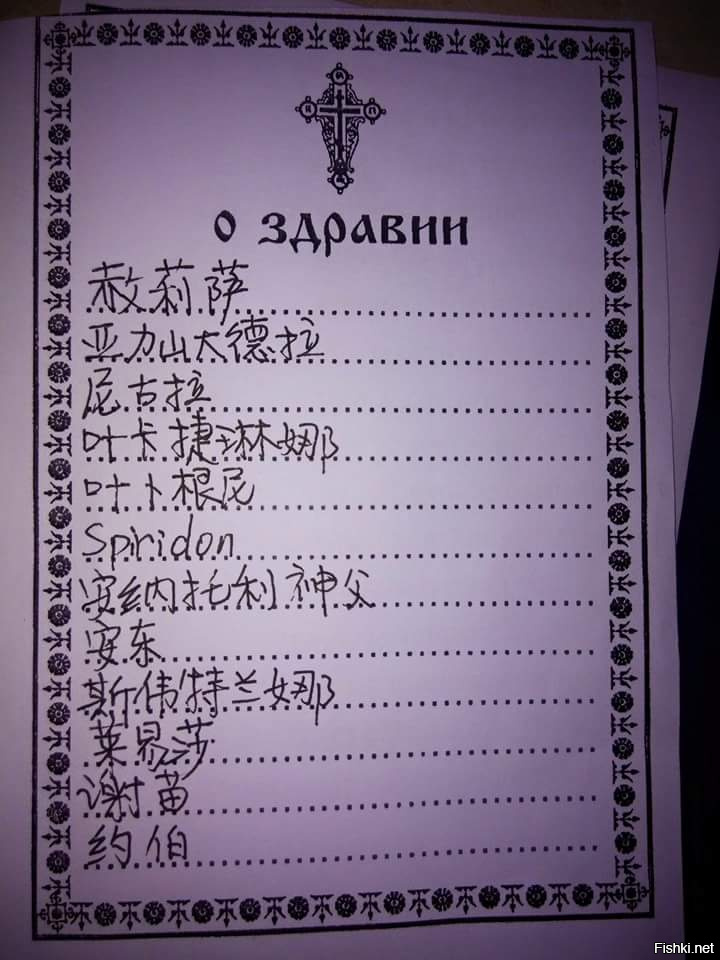 о здравии
赦莉萨
亚力山大德拉
尼古拉
叶卡捷琳娜
叶卜根尼
Spiridon
安纳托利神父
安东
斯伟特兰娜
莱易莎
谢苗
约伯
Fishki.net